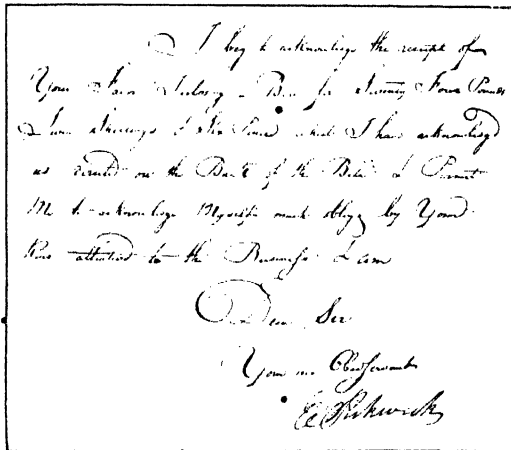 I beg to acknowledge the receipt of
Your Favor Inclosing a Bill for Twenty Four Pounds
Seven Shillings & Six Pence which I have acknowledg'd
as received on the Back of the Bill & Permit
Me to acknowledge Myself much oblig'd by Your
Kind attention to the Business I am
Dear Sir
Your Obed Servant
E Pickwick